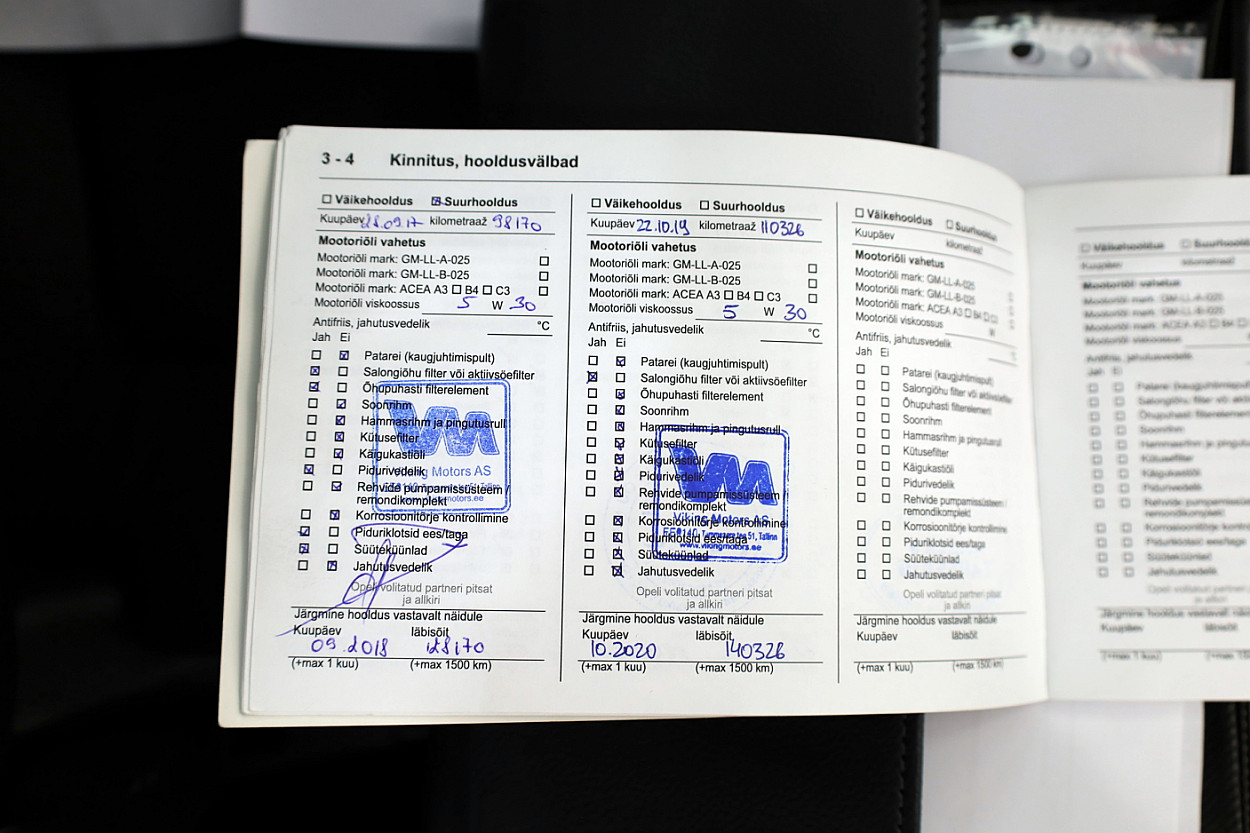 3 - 4 Kinnitus, hooldusvälbad
Väikehooldus Suurhooldus
Kuupäev 28.09.17 kilometraaž 98170
Mootoriõli vahetus
Mootoriõli mark: GM-LL-A-025
Mootoriõli mark: GM-LL-B-025
Mootoriõli mark: ACEA A3 B4 C3
Mootoriõli viskoossus 5 W 30
Antifriis, jahutusvedelik °C
Jah Ei
Patarei (kaugjuhtimispult)
Salongiõhu filter või aktiivsöefilter
Õhupuhasti filterelement
Soonrihm
Hammasrihm ja pingutusrull
Kütusefilter
Käigukastiõli
Pidurivedelik
Rehvide pumpamissüsteem /
remondikomplekt
Korrosioonitõrje kontrollimine
Piduriklotsid ees/taga
Süüteküünlad
Jahutusvedelik
VM
Viking Motors AS
Opeli volitatud partneri pitsat
ja allkiri
Järgmine hooldus vastavalt näidule
Kuupäev läbisõit
09.2018 128170
(+max 1 kuu) (+max 1500 km)
Väikehooldus Suurhooldus
Kuupäev 22.10.19 kilometraaž 110326
Mootoriõli vahetus
Mootoriõli mark: GM-LL-A-025
Mootoriõli mark: GM-LL-B-025
Mootoriõli mark: ACEA A3 B4 C3
Mootoriõli viskoossus 5 W 30
Antifriis, jahutusvedelik °C
Jah Ei
Patarei (kaugjuhtimispult)
Salongiõhu filter või aktiivsöefilter
Õhupuhasti filterelement
Soonrihm
Hammasrihm ja pingutusrull
Kütusefilter
Käigukastiõli
Pidurivedelik
Rehvide pumpamissüsteem /
remondikomplekt
Korrosioonitõrje kontrollimine
Piduriklotsid ees/taga
Süüteküünlad
Jahutusvedelik
VM
Viking Motors AS
Tammsaare tee 51, Tallinn
www.vikingmotors.ee
Opeli volitatud partneri pitsat
ja allkiri
Järgmine hooldus vastavalt näidule
Kuupäev läbisõit
10.2020 140326
(+max 1 kuu) (+max 1500 km)
Väikehooldus Suurhooldus
Kuupäev kilometraaž
Mootoriõli vahetus
Mootoriõli mark: GM-LL-A-025
Mootoriõli mark: GM-LL-B-025
Mootoriõli mark: ACEA A3 B4 C3
Mootoriõli viskoossus W
Antifriis, jahutusvedelik °C
Jah Ei
Patarei (kaugjuhtimispult)
Salongiõhu filter või
Õhupuhasti filterelement
Soonrihm
Hammasrihm ja pingutusrull
Kütusefilter
Käigukastiõli
Pidurivedelik
Rehvide pumpamissüsteem /
remondikomplekt
Korrosioonitõrje kontrollimine
Piduriklotsid ees/taga
Süüteküünlad
Jahutusvedelik
Opeli volitatud partneri pitsat
ja allkiri
Järgmine hooldus vastavalt näidule
Kuupäev läbisõit
(+max 1 kuu) (+max 1500 km)
Väikehooldus
Kuupäev
Mootoriõli vahetus
Mootoriõli mark: GM-LL-A-025
Mootoriõli mark: GM-LL-B-025
Mootoriõli mark: ACEA A3
Mootoriõli viskoossus
Antifriis, jahutusvedelik
Jah Ei
Soonrihm
Kütusefilter
Käigukastiõli
Pidurivedelik
remondikomplekt
Süüteküünlad
Jahutusvedelik
Kuupäev